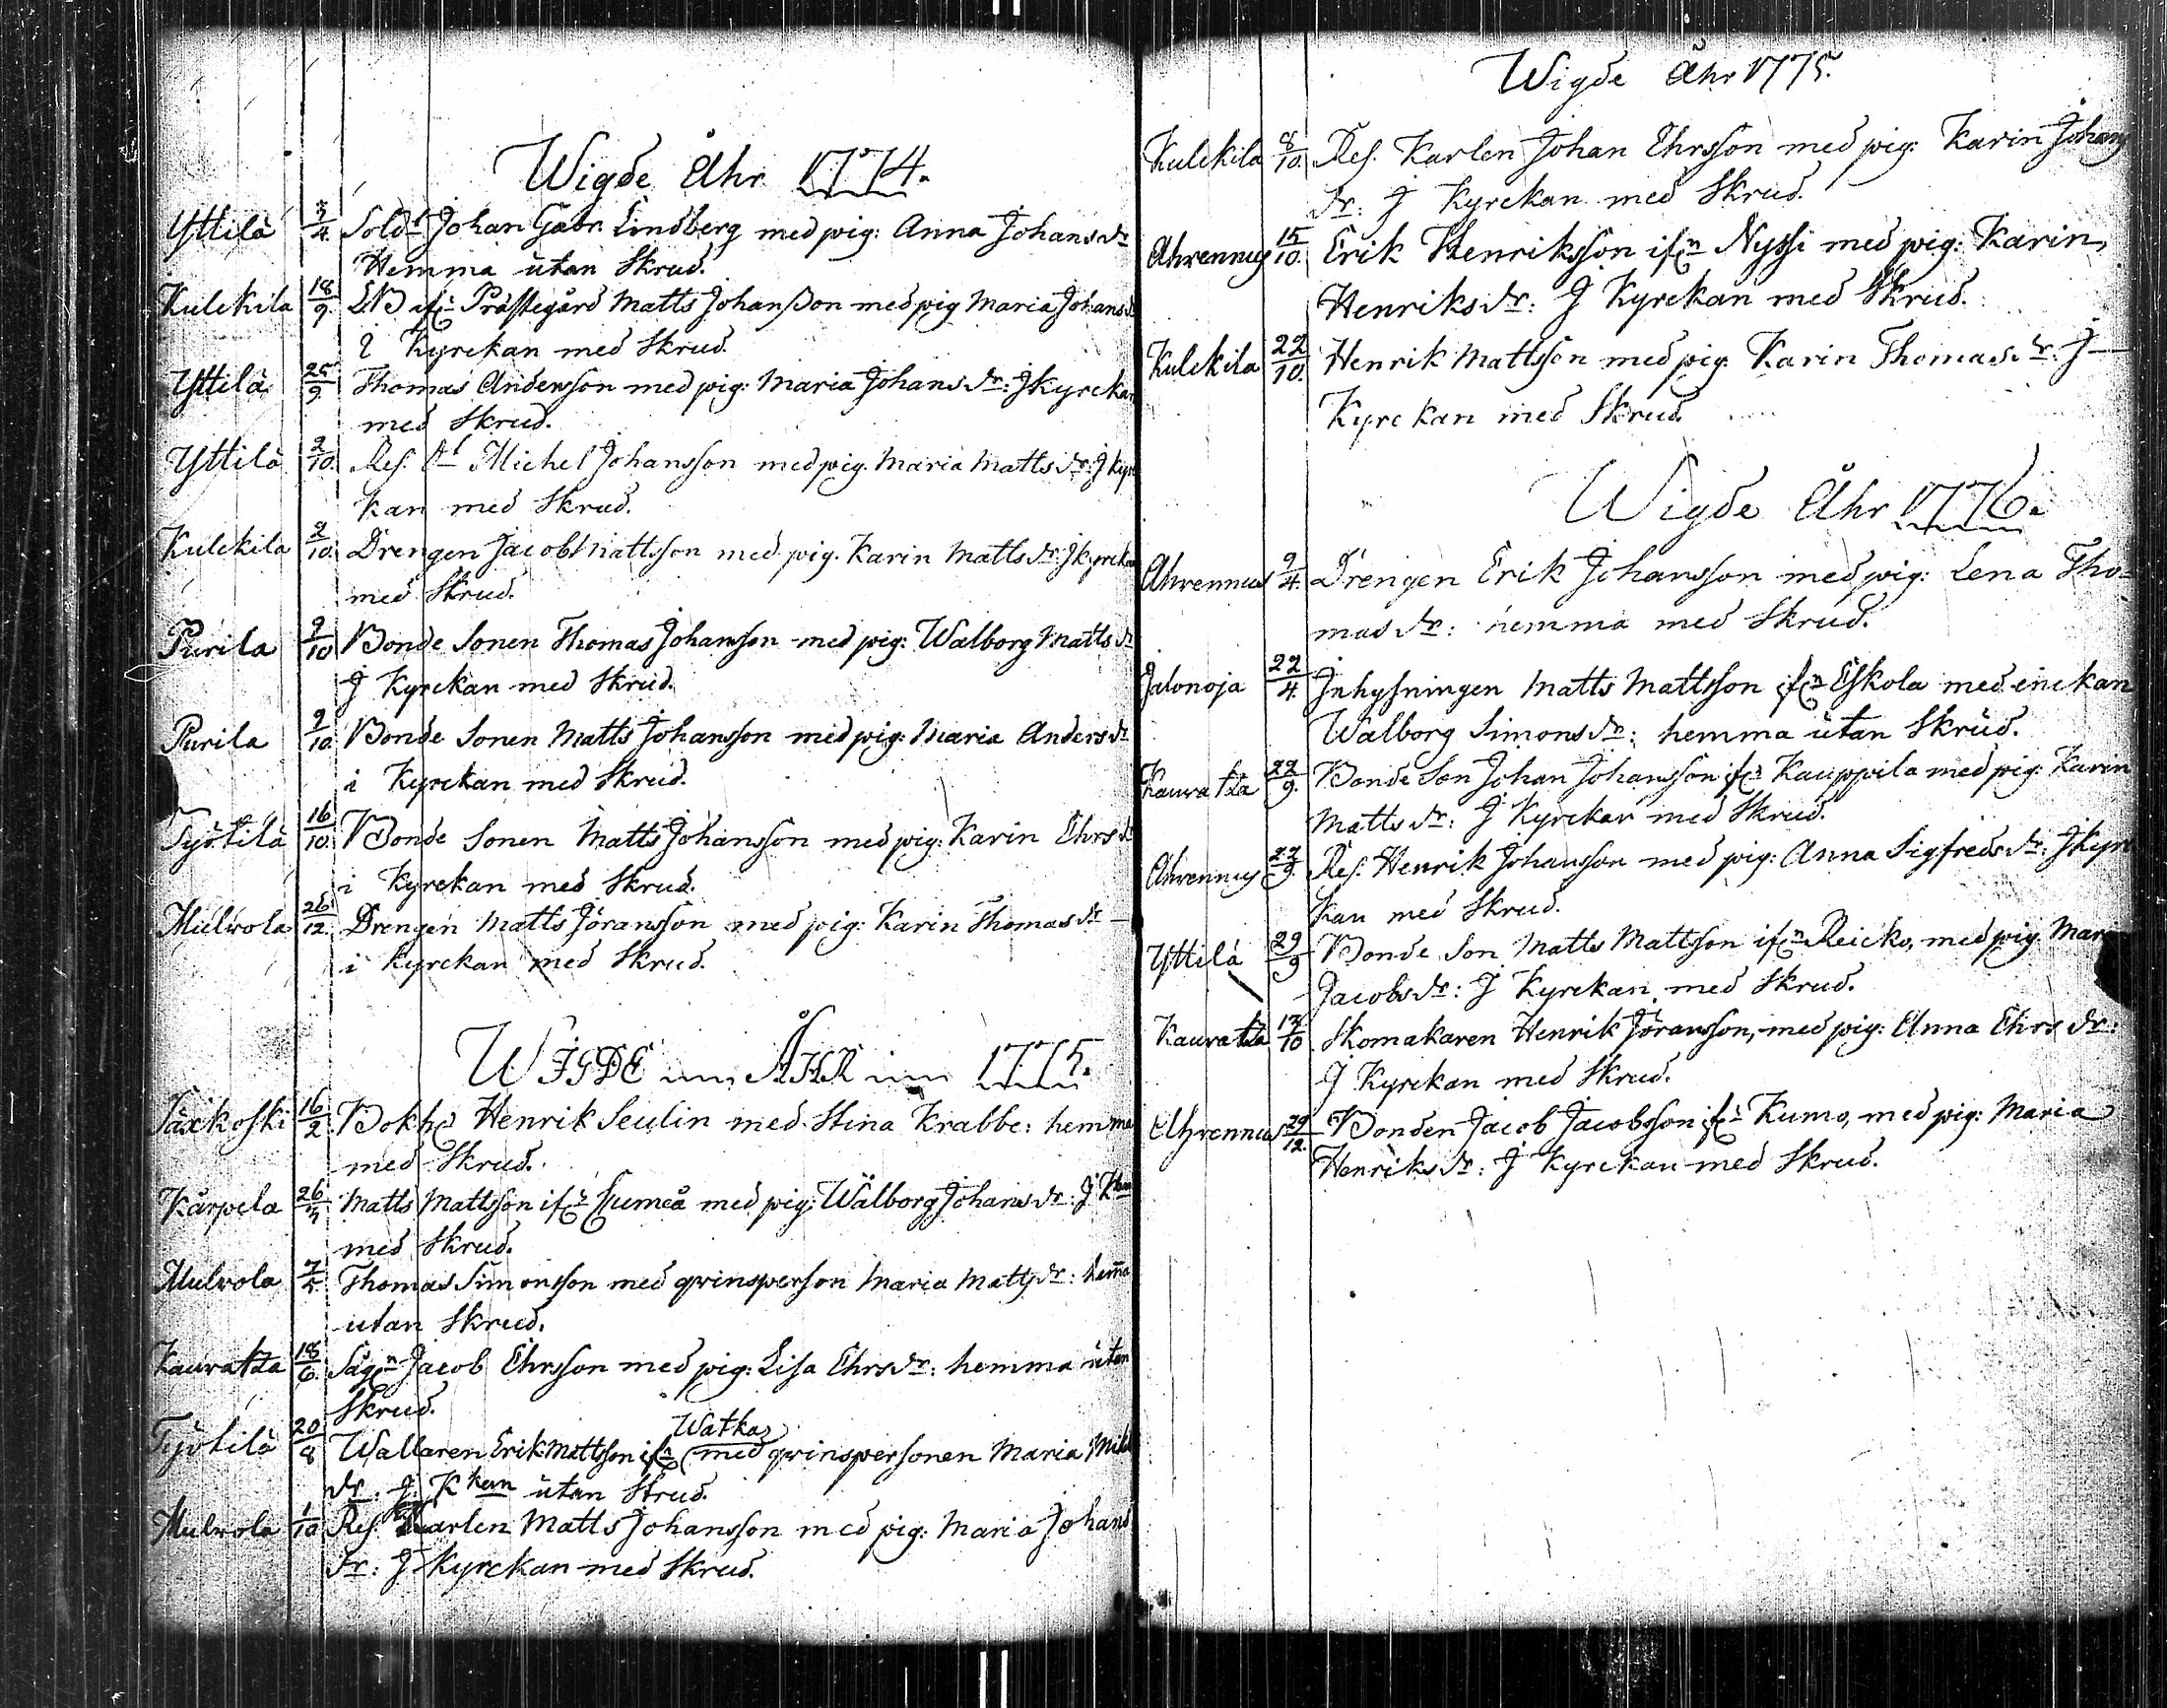 Wigde Åhr 1774.
Yttilä 3/4 Sold:t Johan Gabr. Lindberg med pig: Anna Johans dr
Hemma utan Skrud.
Kulckila 18/9 Präftegård Matts Johanßon med pig Maria Johans d
i Kyrckan med Skrud.
Yttilä 25/9 Thomas Andersson med pig: Maria Johans dr: J Kyrckan
med Skrud.
Yttilä 2/10 Res. Michel Johansson med pig. Maria Matts dr: J Kyr
kan med Skrud.
Kulckila 2/10 Drengen Jacob Mattsson med pig. Karin Matts dr: J Kyrckan
med Skrud.
Purila 9/10 Bonde Sonen Thomas Johansson med pig: Walborg Matts dr
J Kyrckan med Skrud.
Purila 9/10 Bonde Sonen Matts Johansson med pig: Maria Anders dr
i Kyrckan med Skrud.
Työtilä 16/10 Bonde Sonen Matts Johansson med pig: Karin Ehrs d
i Kyrckan med Skrud.
Mulvola 26/12 Drengen Matts Jöransson med pig: Karin Thomas dr —
i Kyrckan med Skrud.
WIGDE ÅHR 1775.
Säxkoski 16/2 Bokh. Henrik Seulin med Stina Krabbe: hemma
med Skrud.
Kärpela 26/3 Matts Mattsson if:n Lumeå med pig: Wälborg Johans dr: J Kkan
med Skrud.
Mulvola 7/5 Thomas Simonsson med qvinsperson Maria Matts dr: hemma
utan Skrud.
Kauvatza 18/6 Säg:n Jacob Ehrsson med pig: Lisa Ehrs dr: hemma utan
Skrud.
Työtilä 20/8 Wallaren Erik Mattsson if:n Watka med qvinspersonen Maria Mik
dr: J Kkan utan Skrud.
Mulvola 1/10 Res. Karlen Matts Johansson med pig: Maria Johans
dr: J Kyrckan med Skrud.
Wigde Åhr 1775.
Kulckila 8/10 Res. Karlen Johan Ehrsson med pig: Karin Johans
dr: J Kyrckan med Skrud.
Ahrennus 15/10 Erik Henriksson if:n Nyssi med pig: Karin
Henriks dr: J Kyrckan med Skrud.
Kulckila 22/10 Henrik Mattsson med pig. Karin Thomas dr: J —
Kyrckan med Skrud.
Wigde Åhr 1776.
Ahrennus 9/4 Drengen Erik Johansson med pig: Lena Tho-
mas dr: hemma med Skrud.
Jalonoja 22/4 Jnhysningen Matts Mattsson if:n Eskola med enckan
Walborg Simons dr: hemma utan Skrud.
Kauvatza 22/9 Bonde Son Johan Johansson if:n Kauppila med pig: Karin
Matts dr: J Kyrckan med Skrud.
Ahrennus 22/9 Res. Henrik Johansson med pig: Anna Sigfreds dr: J Kyr
kan med Skrud.
Yttilä 29/9 Bonde Son Matts Mattsson if:n Reicko, med pig. Mari
Jacobs dr: J Kyrckan med Skrud.
Kauvatza 13/10 Skomakaren Henrik Jöransson, med pig: Anna Ehrs dr:
J Kyrckan med Skrud.
Ahrennus 29/12 Bonden Jacob Jacobsson if:n Kumo, med pig: Maria
Henriks dr: J Kyrckan med Skrud.